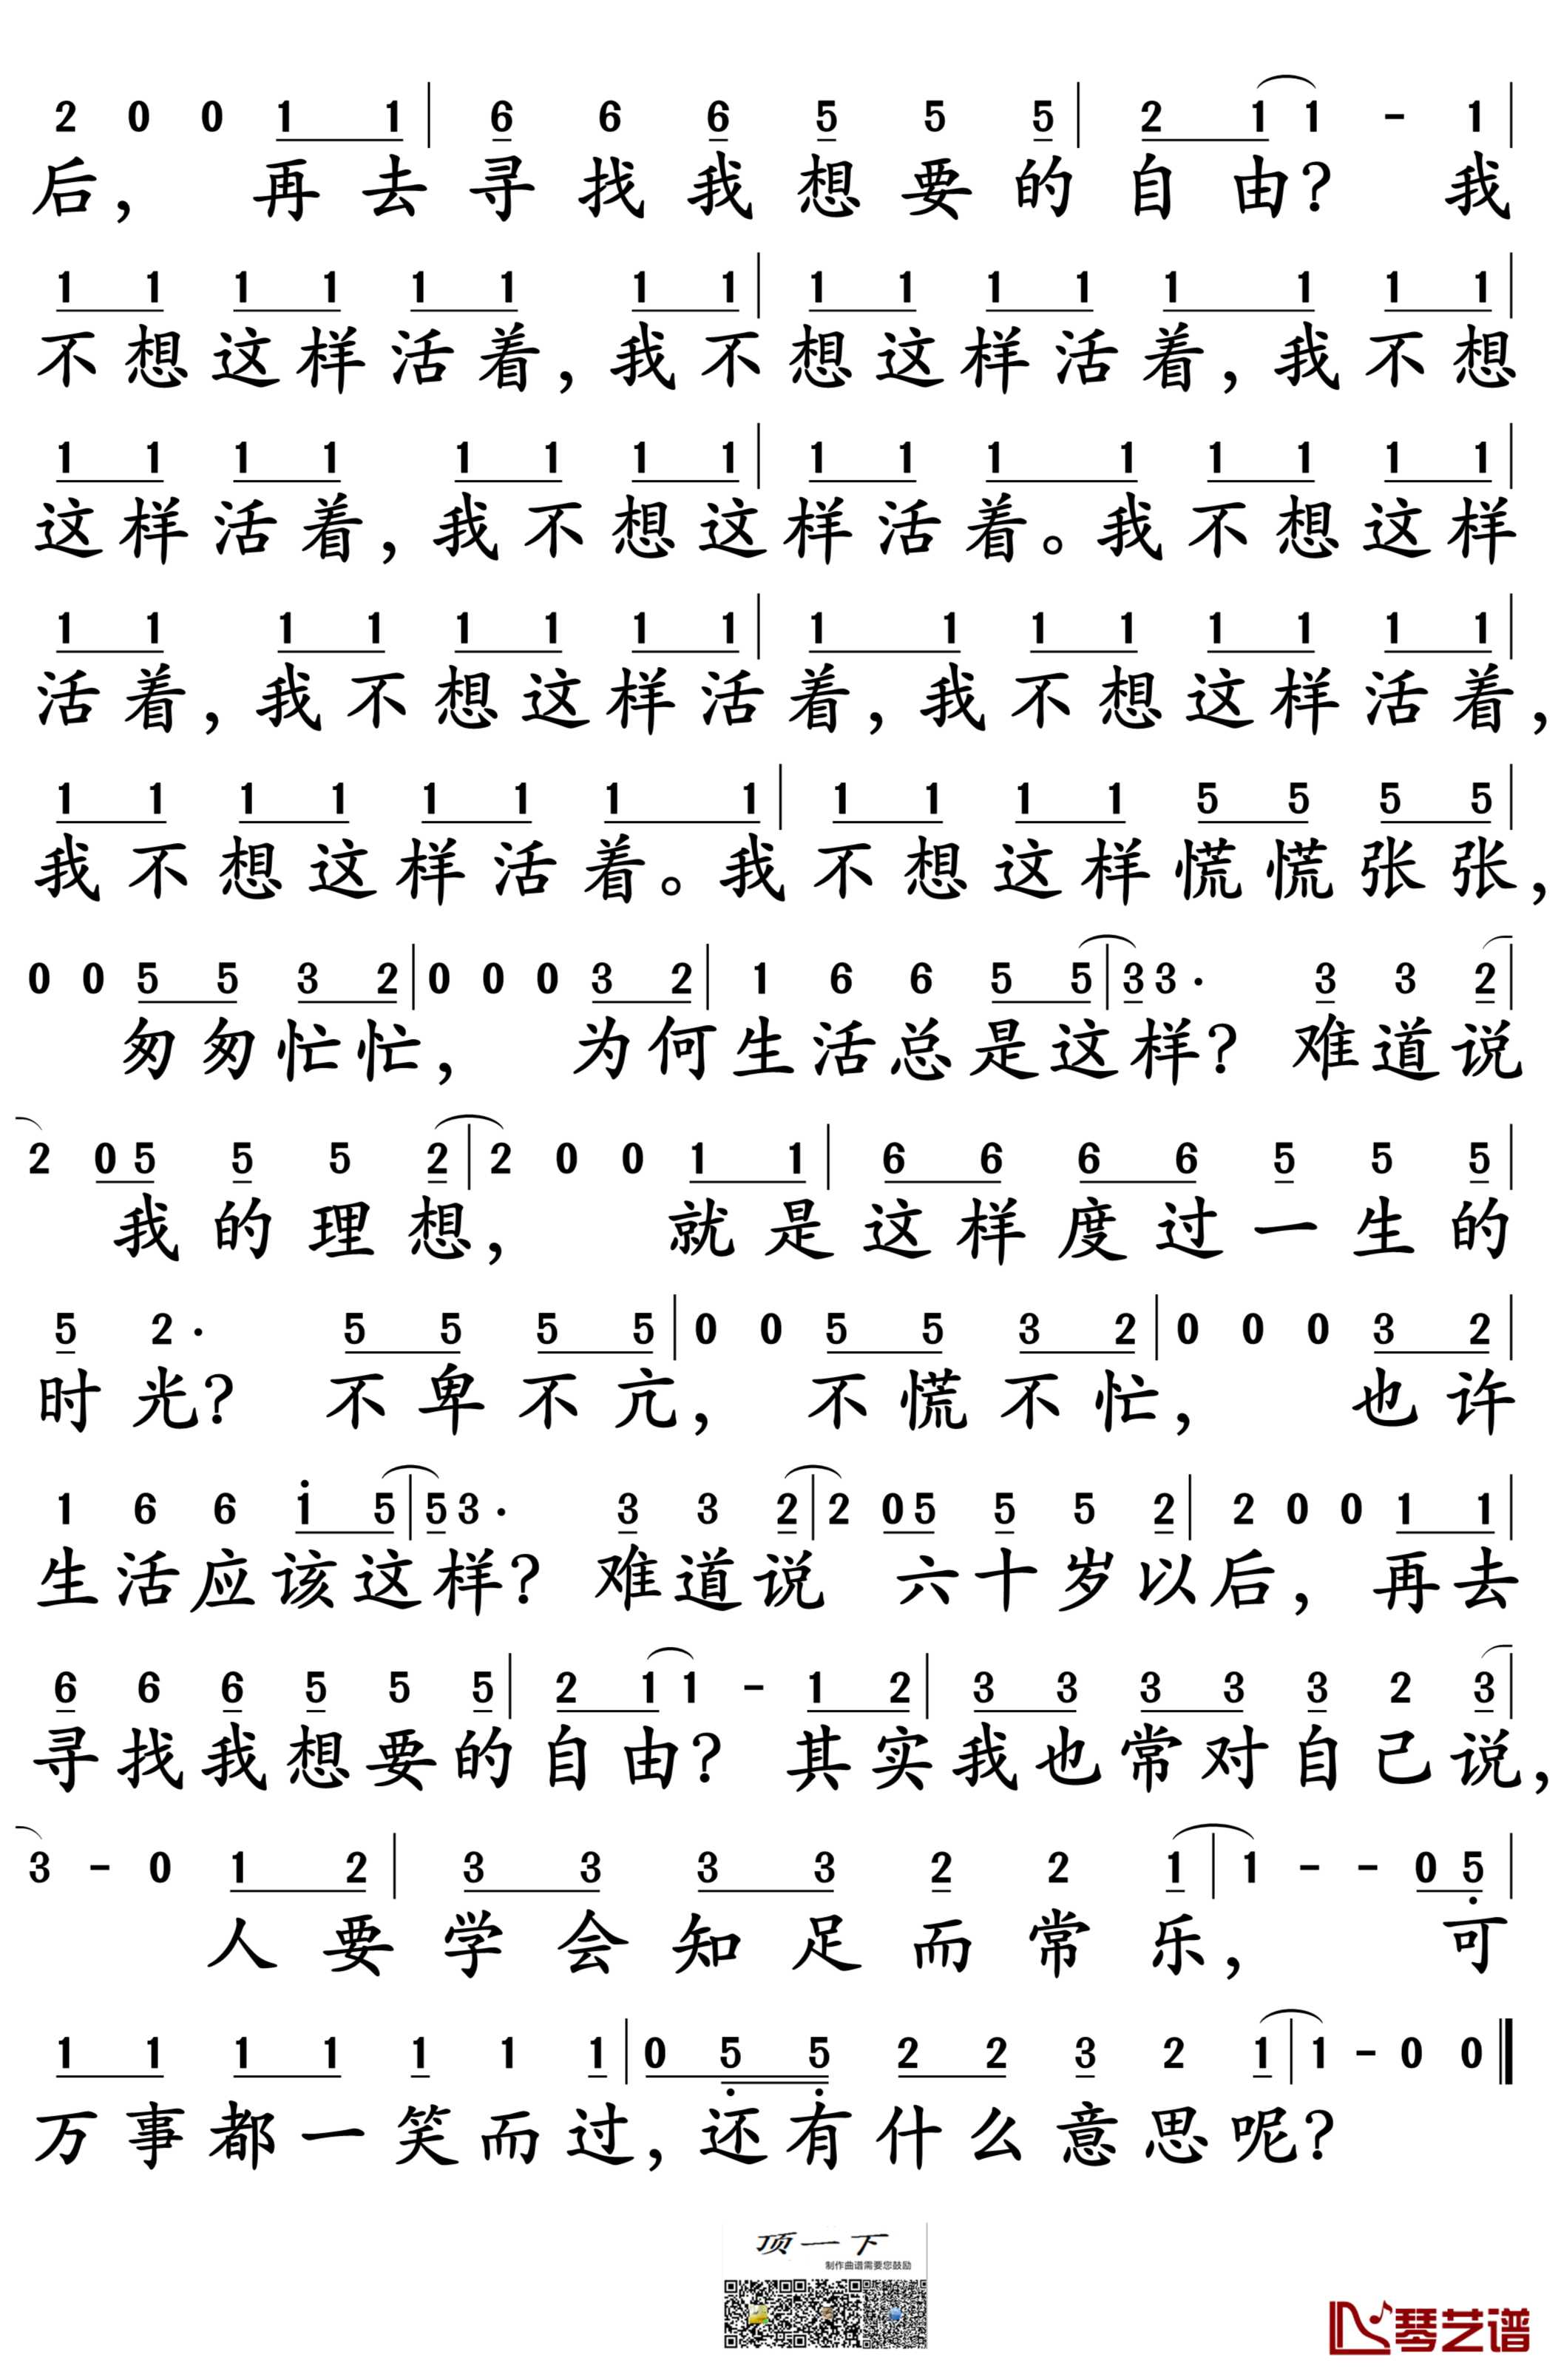 2 0 0 1 1 | 6 6 6 5 5 5 | 2 1 1 - 1 |
后， 再去寻找我想要的自由？ 我
1 1 1 1 1 1 1 1 | 1 1 1 1 1 1 1 1 |
不想这样活着，我不想这样活着，我不想
1 1 1 1 1 1 1 1 | 1 1 1 1 1 1 1 1 |
这样活着，我不想这样活着。我不想这样
1 1 1 1 1 1 1 1 | 1 1 1 1 1 1 1 1 |
活着，我不想这样活着，我不想这样活着，
1 1 1 1 1 1 1 1 | 1 1 1 1 5 5 5 5 |
我不想这样活着。我不想这样慌慌张张，
0 0 5 5 3 2 | 0 0 0 3 2 | 1 6 6 5 5 | 3 3 · 3 3 2 |
匆匆忙忙， 为何生活总是这样？ 难道说
2 0 5 5 5 2 | 2 0 0 1 1 | 6 6 6 6 5 5 5 |
我的理想， 就是这样度过一生的
5 2 · 5 5 5 5 | 0 0 5 5 3 2 | 0 0 0 3 2 |
时光？ 不卑不亢， 不慌不忙， 也许
1 6 6 i 5 | 5 3 · 3 3 2 | 2 0 5 5 5 2 | 2 0 0 1 1 |
生活应该这样？ 难道说 六十岁以后，再去
6 6 6 5 5 5 | 2 1 1 - 1 2 | 3 3 3 3 3 2 3 |
寻找我想要的自由？ 其实我也常对自己说，
3 - 0 1 2 | 3 3 3 3 2 2 1 | 1 - - 0 5 |
人要学会知足而常乐， 可
1 1 1 1 1 1 1 | 0 5 5 2 2 3 2 1 | 1 - 0 0
万事都一笑而过，还有什么意思呢？
顶一下
制作曲谱需要您鼓励
琴艺谱